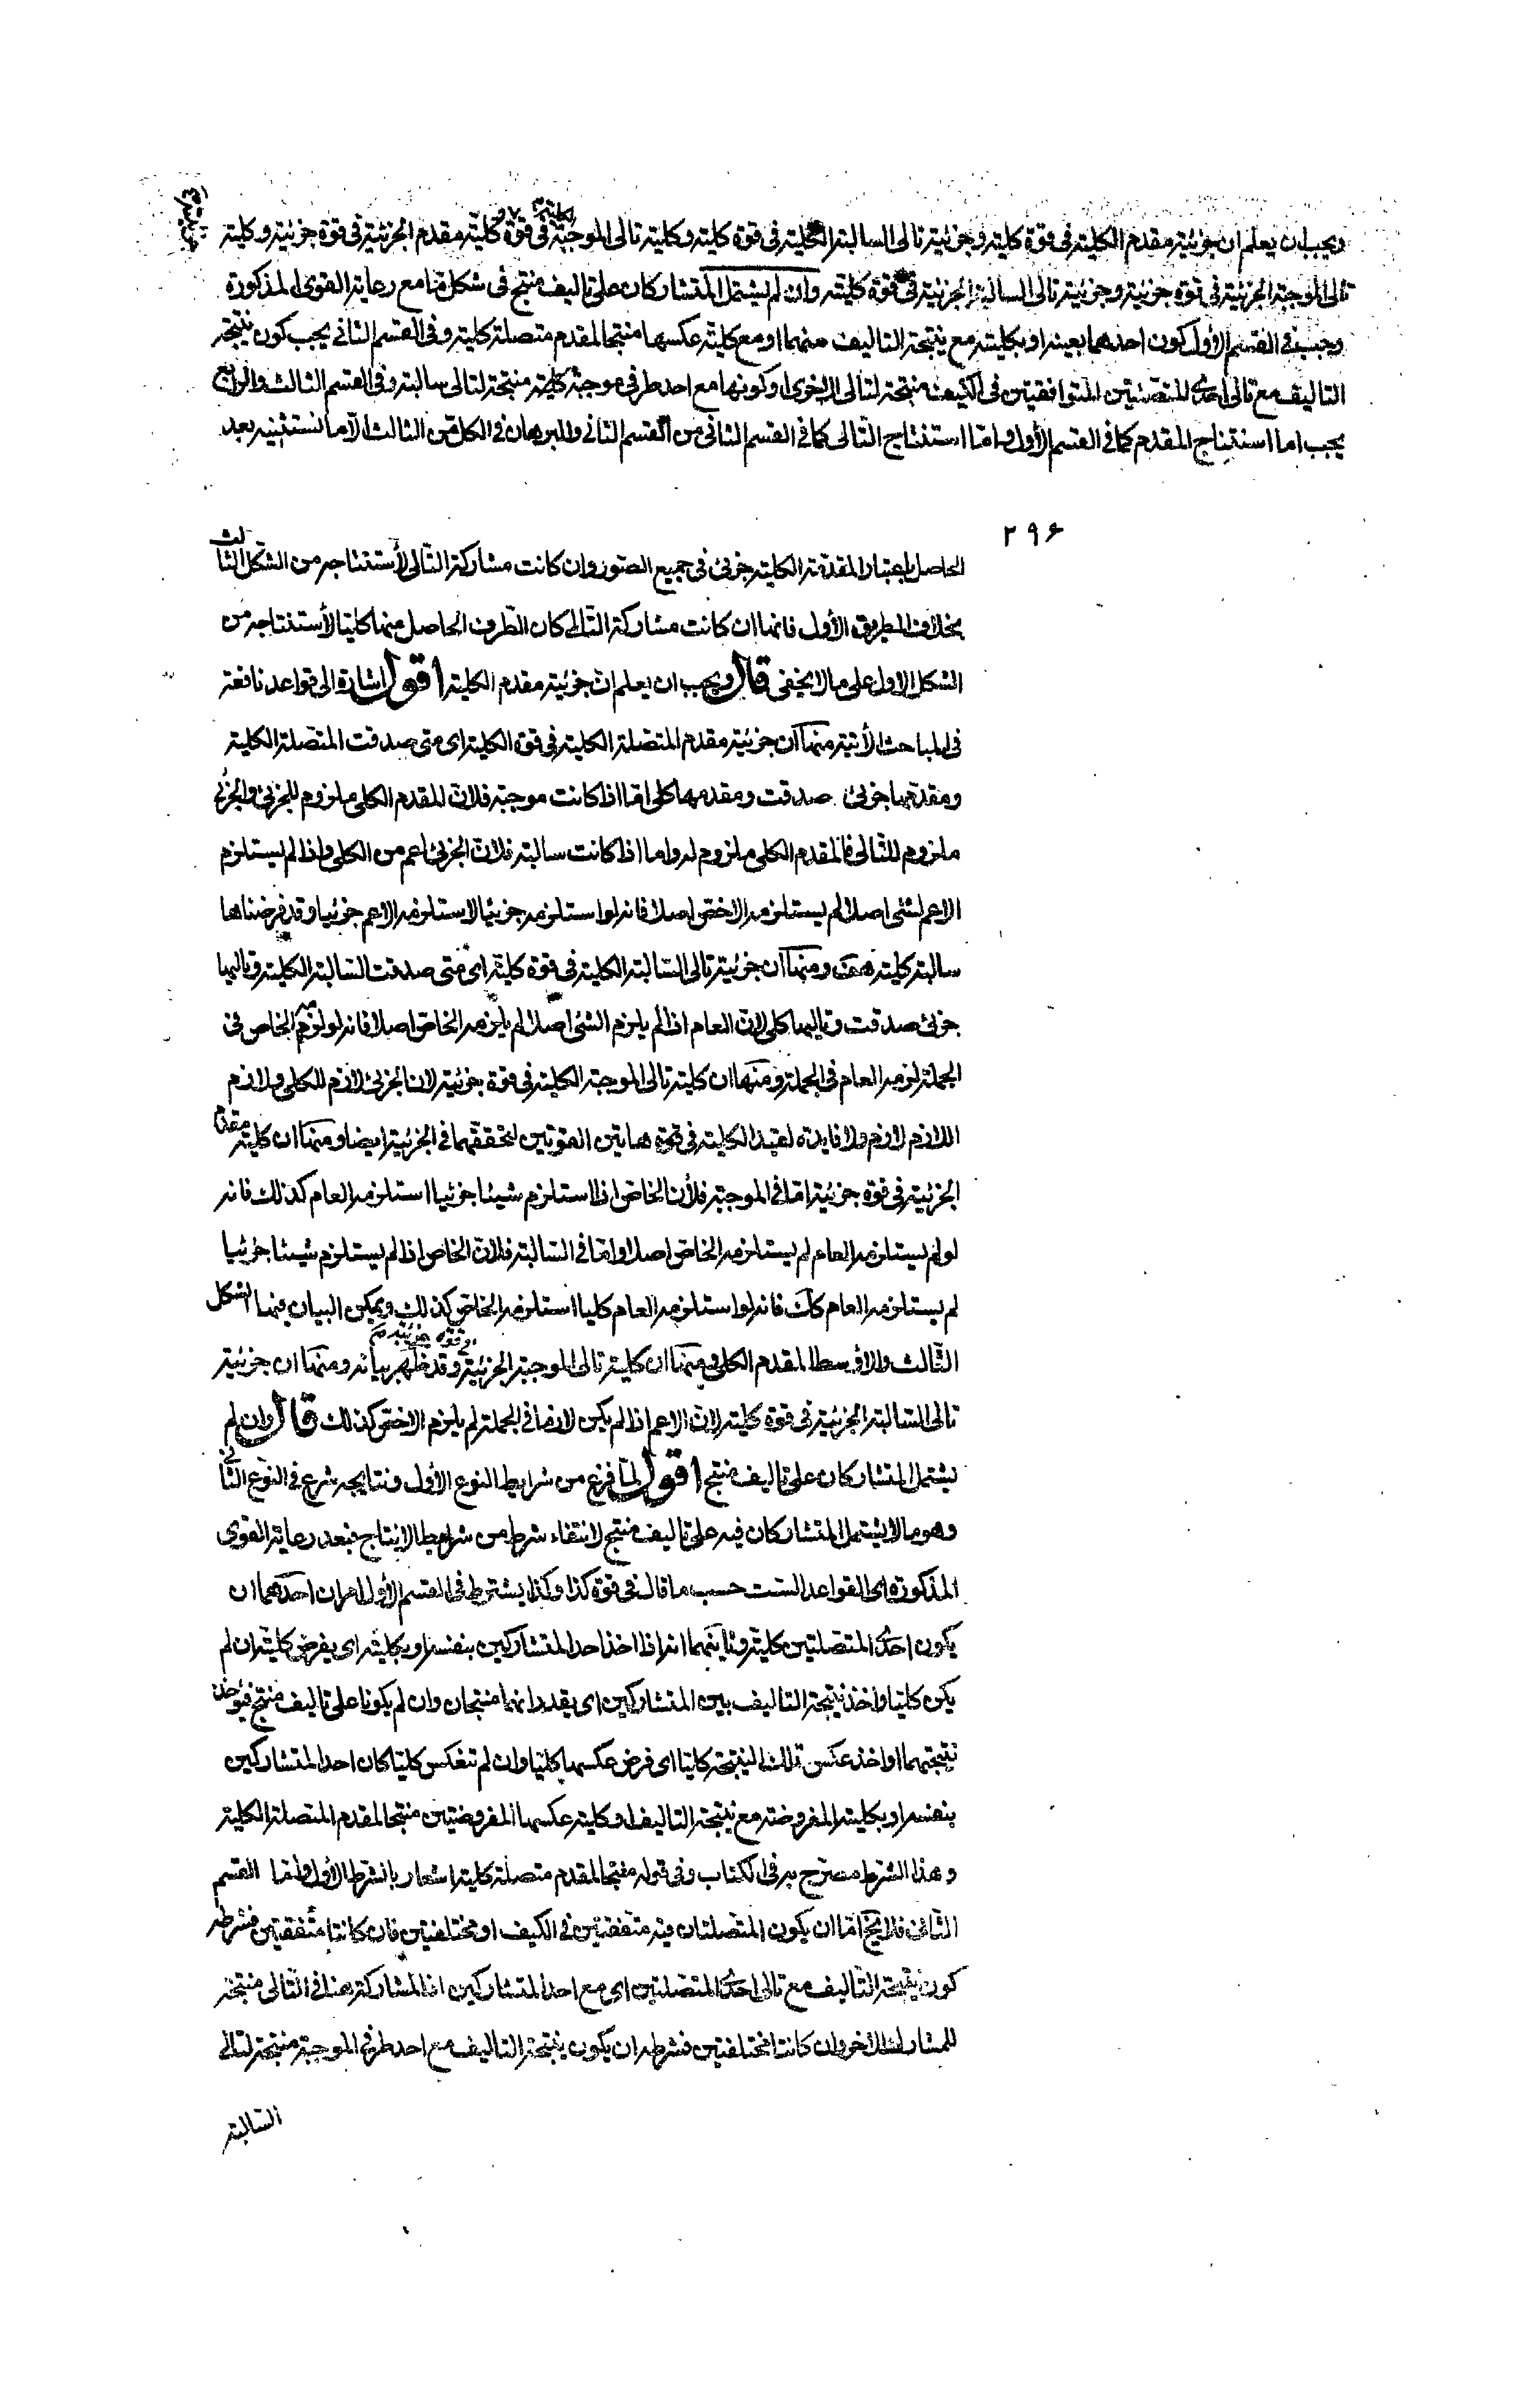 ويجب ان يعلم ان جزئية مقدم الكلية فى قوة كلية وجزئية تالى السالبة الكلية فى قوة كلية وكلية تالى الموجبة الكلية فى قوة كلية مقدم الجزئية فى قوة جزئية وكلية
تالى الموجبة الجزئية فى قوة جزئية وجزئية تالى السالبة الجزئية فى قوة كلية وان لم يشتمل المتشاركان على تاليف منتج فى شكل ما مع رعاية القوى المذكورة
وجب فى القسم الأول كون احدهما بعينه او بكليته مع نتيجة التاليف منهما او مع كلية عكسها منتجا لمقدم متصلة كلية وفى القسم الثانى يجب كون نتيجة
التاليف مع تالى احدى المتصلتين المتوافقتين فى الكيف منتجة لتالى الاخرى او كونها مع احد طرفى موجبة كلية منتجة لتالى سالبة وفى القسم الثالث والرابع
يجب اما استنتاج المقدم كما فى القسم الأول واما استنتاج التالى كما فى القسم الثانى من القسم الثانى والبرهان فى الكل من الثالث الا ما نستثنيه بعد
٢٩۶
الحاصل باعتبار المقدمة الكلية جزئى فى جميع الصور وان كانت مشاركة التالى لأستنتاجه من الشكل الثالث
بخلاف الطريق الأول فانها ان كانت مشاركة التالى كان الطرف الحاصل منها كليا لأستنتاجه من
الشكل الاول على ما لا يخفى قال ويجب ان يعلم ان جزئية مقدم الكلية اقول اشارة الى قواعد نافعة
فى المباحث الأتية منها ان جزئية مقدم المتصلة الكلية فى قوة الكلية اى متى صدقت المتصلة الكلية
ومقدمها جزئى صدقت ومقدمها كلى اما اذا كانت موجبة فلان المقدم الكلى ملزوم للجزئى والجزئى
ملزوم للتالى فالمقدم الكلى ملزوم له واما اذا كانت سالبة فلان الجزئى اعم من الكلى واذا لم يستلزم
الاعم لشئ اصلا لم يستلزمه الاخص اصلا فانه لو استلزمه جزئيا لاستلزمه الاعم جزئيا وقد فرضناها
سالبة كلية هف ومنها ان جزئية تالى السالبة الكلية فى قوة كلية اى متى صدقت السالبة الكلية وتاليها
جزئى صدقت وتاليها كلى لان العام اذا لم يلزم الشئ اصلا لم يلزمه الخاص اصلا فانه لو لزمه الخاص فى
الجملة لزمه العام فى الجملة ومنها ان كلية تالى الموجبة الكلية فى قوة جزئية لان الجزئى لازم للكلى ولازم
اللازم لازم ولا فايدة لقيد الكلية فى قوة هاتين القوتين لتحققهما فى الجزئية ايضا ومنها ان كلية مقدم
الجزئية فى قوة جزئية اما فى الموجبة فلأن الخاص اذا استلزم شيئا جزئيا استلزمه العام كذلك فانه
لو لم يستلزمه العام لم يستلزمه الخاص اصلا واما فى السالبة فلان الخاص اذا لم يستلزم شيئا جزئيا
لم يستلزمه العام كك فانه لو استلزمه العام كليا استلزمه الخاص كذلك ويمكن البيان فيهما بالشكل
الثالث والاوسط المقدم الكلى ومنها ان كلية تالى الموجبة الجزئية فى قوة جزئية وقد ظهر بيانه ومنها ان جزئية
تالى السالبة الجزئية فى قوة كلية لان الاعم اذا لم يكن لازما فى الجملة لم يلزم الاخص كذلك قال وان لم
يشتمل المتشاركان على تاليف منتج اقول لما فرغ من شرايط النوع الأول ونتايجه شرع فى النوع الثانى
وهو ما لا يشتمل المتشاركان فيه على تاليف منتج لانتفاء شرط من شرايط الانتاج فبعد رعاية القوى
المذكورة اى القواعد الست حسب ما قال فى قوة كذا وكذا يشترط فى القسم الأول امران احدهما ان
يكون احدى المتصلتين كلية وثانيهما انه اذا اخذ احد المتشاركين بنفسه او بكليته اى يفرض كليته ان لم
يكن كليا واخذ نتيجة التاليف بين المتشاركين اى يقدر انهما منتجان وان لم يكونا على تاليف منتج فيؤخذ
نتيجتهما او اخذ عكس تلك النتيجة كليا اى فرض عكسها كليا وان لم تنعكس كليا كان احد المتشاركين
بنفسه او بكليته المفروضة مع نتيجة التاليف او كلية عكسها المفروضتين منتجا لمقدم المتصلة الكلية
وهذا الشرط مصرح به فى الكتاب وفى قوله منتجا لمقدم متصلة كلية اشعار بالشرط الأول واما القسم
الثانى فلا يخ اما ان يكون المتصلتان فيه متفقتين فى الكيف او مختلفتين فان كانتا متفقتين فشرطه
كون نتيجة التاليف مع تالى احدى المتصلتين اى مع احد المتشاركين اذ المشاركة هنا فى التالى منتجة
للمشارك الاخر وان كانتا مختلفتين فشرطه ان يكون نتيجة التاليف مع احد طرفى الموجبة منتجة لتالى
السالبة